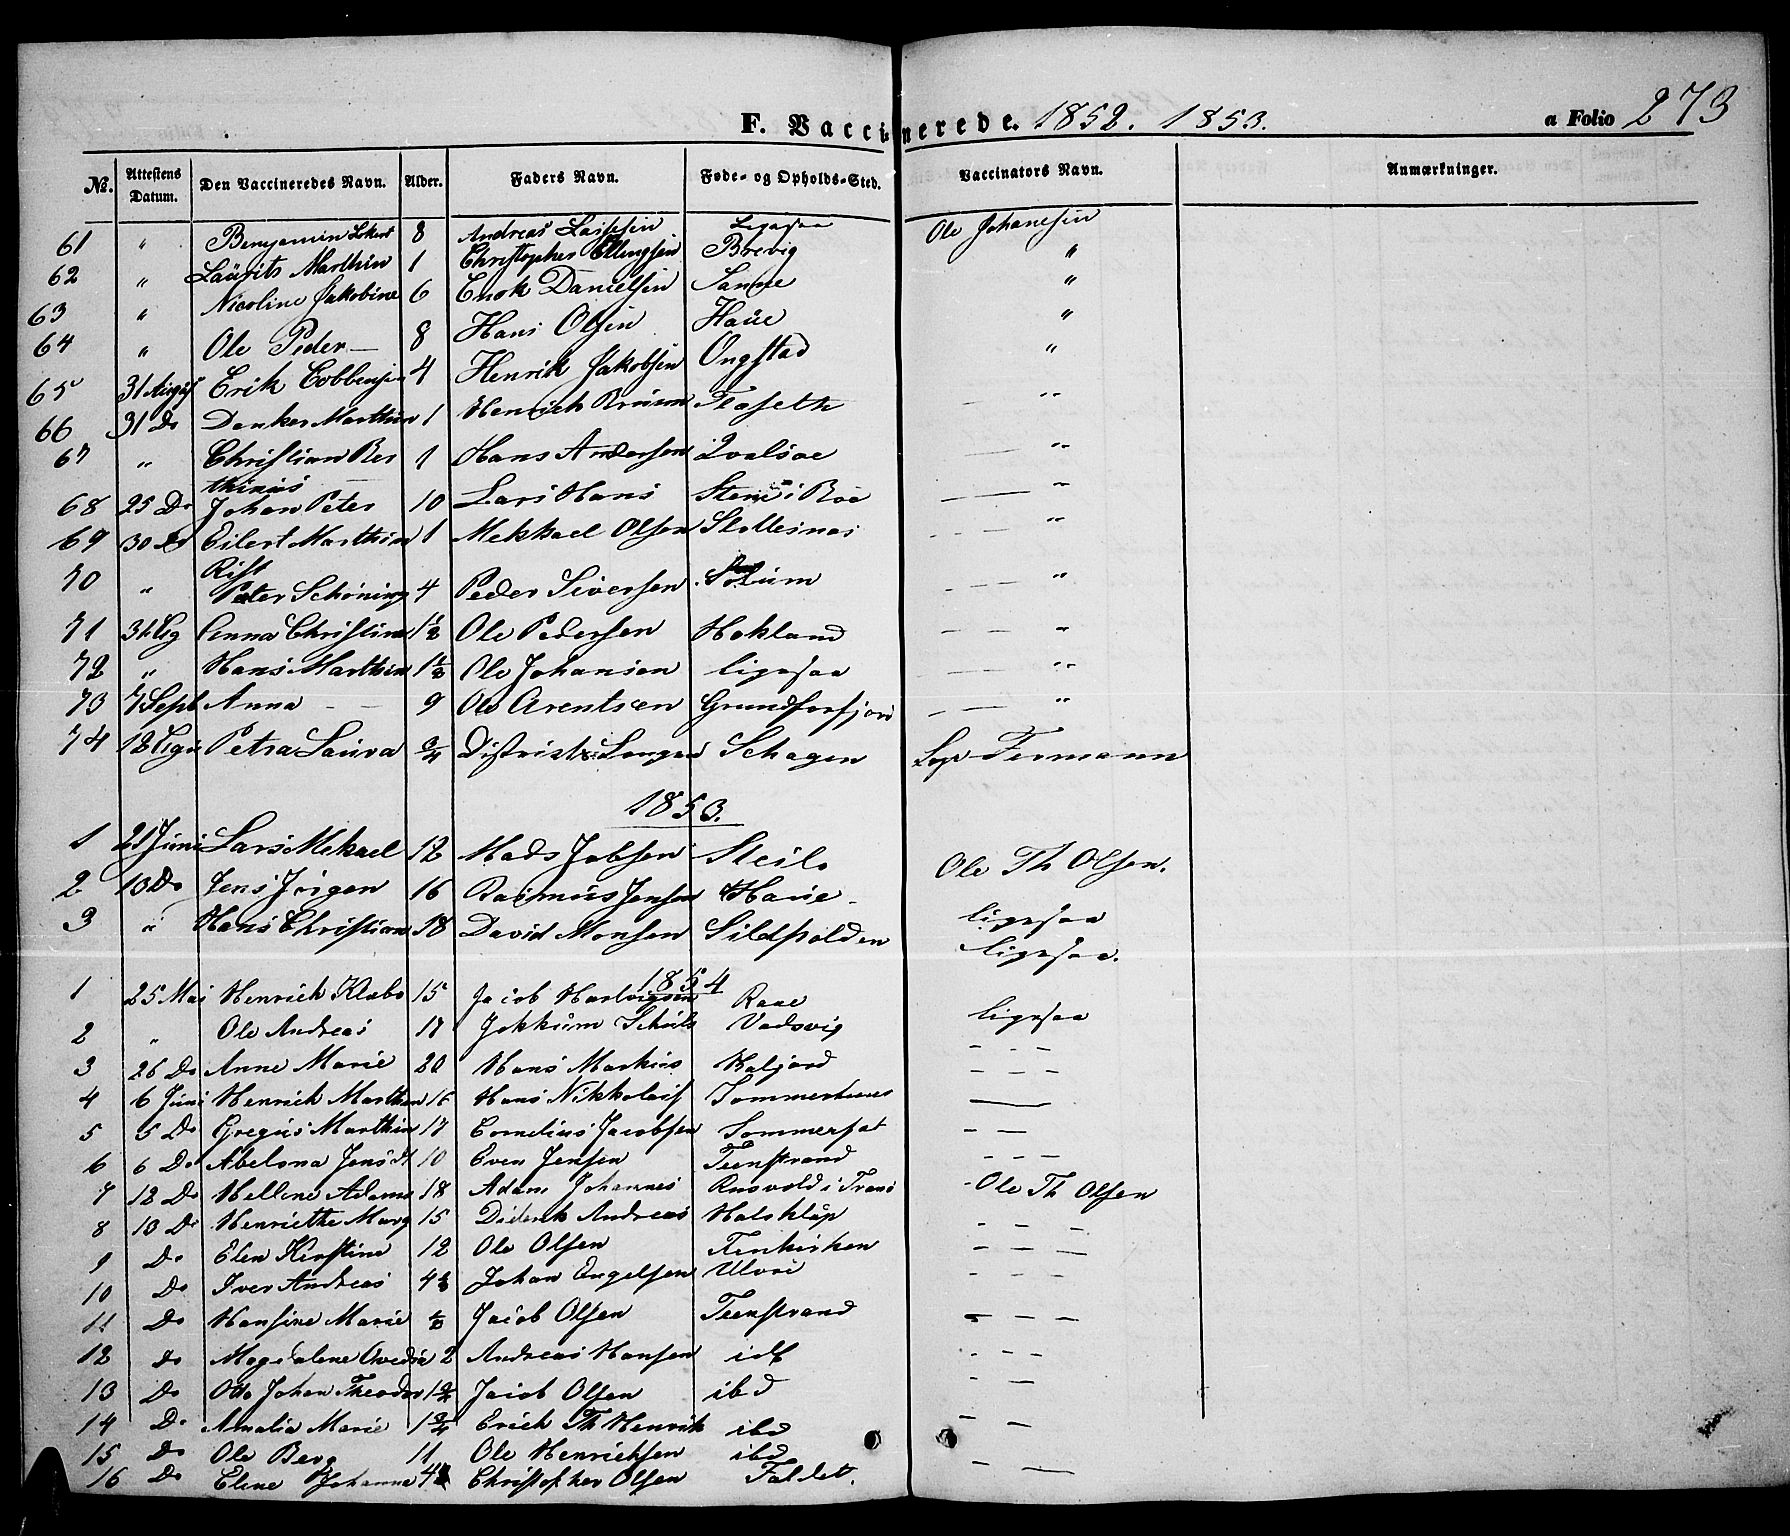 F. Vaccinerede. 1852. 1853. a Folio 273
No. Attestens Datum. Den Vaccineredes Navn. Alder. Faders Navn. Føde- og Opholds-Sted. Vaccinators Navn. Anmærkninger.
61 " Benjamin 8 Andreas Ligesaa Ole Johanesen
62 " Laurits Marthin 1 Christopher Ellingsen Brevig "
63 " Nicoline Jakobine 6 Enok Danielsen Sanne "
64 " Ole Peder — 8 Hans Olsen Haüe "
65 31 August Erik 4 Henrik Jakobsen Ongstad "
66 31 Do Danker Marthin 1 Henrich Bruun Flaseth "
67 " Christian Ber 1 Hans Andersen Qvalsøe "
thinus
68 25 Do Johan Peter 10 Lars Hans i Böe "
69 30 Do Eilert Marthin 1 Mekkael Olsen "
70 " Rist
Peter Schöning 4 Peder Siversen "
71 31 Aug Anna Christine 1½ Ole Pedersen Hokland "
72 " Hans Marthin 1½ Ole Johansen ligesaa "
73 7 Sept Anna 9 Ole Arentsen Grundforfjord "
74 18 Petra Laura ¾ Schagen Fermann
1853.
1 21 Juni Lars Mekael 12 Mads Jobsen Steilo Ole Th Olsen.
2 10 Do Jens Jörgen 16 Rasmus Jensen Haüe - ligesaa
3 " Hans Christian 18 David Monsen Sildpolden ligesaa.
1854
1 25 Mai Henrich Klæbo 15 Jacob Hartvigsen ligesaa
2 " Ole Andreas 17 Jokkum Schüls Vadsvig — — —
3 26 Do Anne Marie 20 Hans Markus — — —
4 6 Juni Henrich Marthin 16 Hans Nikkolais
5 5 Do Gregus Marthin 17 Cornelius Jacobsen Sommersæt — —
6 6 Do Abelona Jensdt 10 Even Jensen Teenstrand — — —
7 12 Do Hellene Adams 18 Adam Johannes i Tranö Ole Th Olsen
8 10 Do Henriethe Marg 15 Diderik Andreas — — —
9 Do Elen Kirstine 12 Ole Olsen — — —
10 Do Iver Andreas Johan Engelsen Ulvöe — — —
11 Do Hansine Marie ½ Jacob Olsen Teenstrand — — —
12 Do Magdalene 2 Andreas Hansen ibd — —
13 Do Otto Johan Theodor Jacob Olsen ibd — —
14 Do Amalia Marie 1¾ Erich Th Henrik ibd — —
15 Do Ole Berg 11 Ole Henrichsen ibd
16 Do Elene Johanna Christopher Olsen Faldet. — —